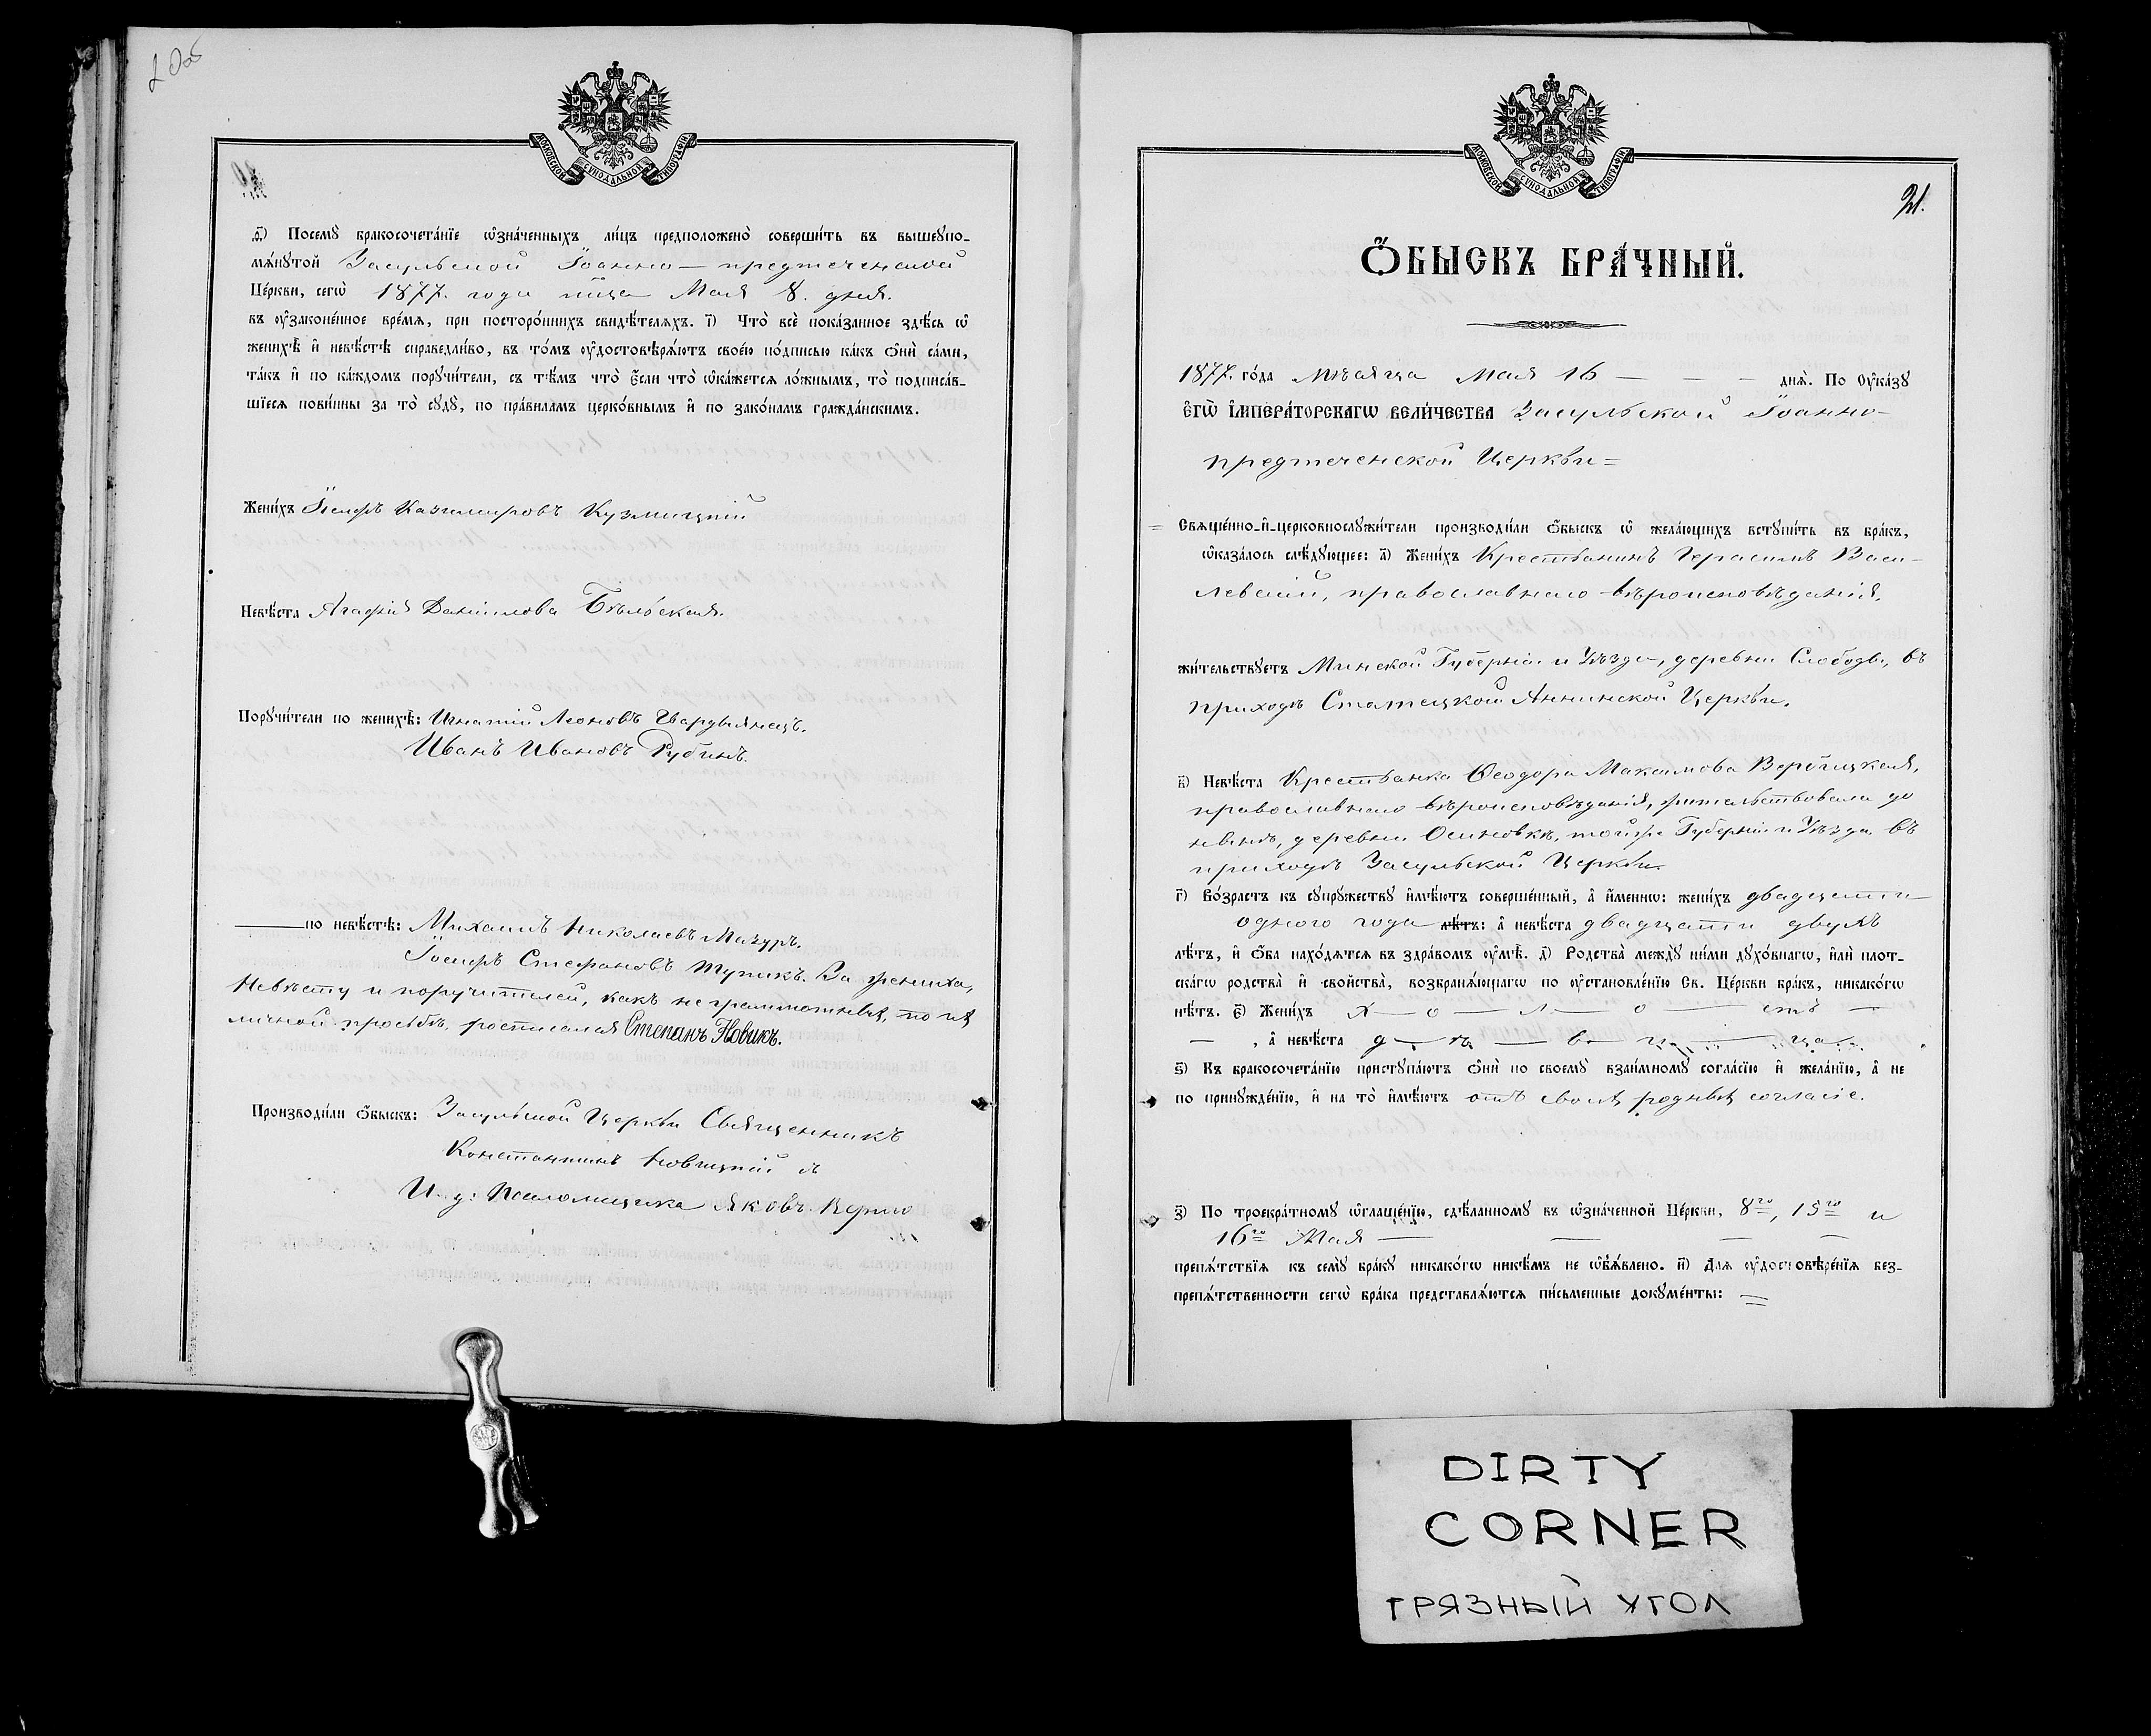 20об
МОСКОВСКОЙ СУНОДАЛЬНОЙ ТИПОГРАФІИ
ѳ҃) Посемꙋ бракосочета́нїе ѡ҆зна́ченныхъ ли́цъ предположено̀ соверши́ть въ вышеꙋпо-
мѧ́нꙋтой Засульской Іоанно-предтеченской
Це́ркви, сегѡ̀ 1877. года м҃ца Мая 8. дня.
въ ᲂу҆зако́ненное вре́мѧ, при посторо́ннихъ свидѣ́телѧхъ. і҃) Что̀ всѐ пока́занное здѣ́сь ѡ҆
женихѣ̀ и҆ невѣ́стѣ справедли́во, въ то́мъ ᲂу҆достовѣрѧ́ютъ свое́ю по́дписью ка́къ ѻ҆нѝ са́ми,
та́къ и҆ по ка́ждомъ порꙋчи́тели, съ тѣ́мъ что̀ є҆́сли что̀ ѡ҆ка́жетсѧ ло́жнымъ, то̀ подписа́в-
шїесѧ пови́нны за то̀ сꙋдꙋ̀, по пра́виламъ церко́внымъ и҆ по зако́намъ гражда́нскимъ.
Жени́хъ Іосифъ Казимировъ Кузмицкій
Невѣ́ста Агафія Даніилова Бѣльская.
Порꙋчи́тели по женихѣ̀: Игнатій Леоновъ Гвардыянецъ.
Иванъ Ивановъ Рубинъ.
по невѣ́стѣ: Михаилъ Николаевъ Мазуръ.
Іосифъ Стефановъ Тупикъ. За жениха,
невѣсту и поручителей, какъ неграмотныхъ, по их
личной просьбѣ, росписался Степанъ Новикъ.
Производи́ли ѻ҆́быскъ: Засульской Церкви Священникъ
Константинъ Новицкій
И. д: Псаломщика Яковъ
МОСКОВСКОЙ СУНОДАЛЬНОЙ ТИПОГРАФІИ
21.
Ѻ҆́БЫСКЪ БРА́ЧНЫЙ.
1877. го́да мѣсяца Мая 16 — — — днѧ̀. По Оу҆ка́зꙋ
Є҆ГѠ̀ И҆МПЕРА́ТОРСКАГѠ ВЕЛИ́ЧЕСТВА Засульской Іоанно-
предтеченской Церкви =
= Свѧще́нно-и҆-церковнослꙋжи́тели производи́ли ѻ҆́быскъ ѡ҆ жела́ющихъ встꙋпи́ть въ бра́къ,
ѡ҆каза́лось слѣ́дꙋющее: а҃) Жени́хъ Крестьянинъ Герасимъ Васи-
левскій, православнаго вѣроисповѣданія,
жи́тельствꙋетъ Минской Губерніи и Уѣзда, деревни Слободы, въ
приходѣ Статецкой Аннинской Церкви.
в҃) Невѣ́ста Крестьянка Ѳеодора Максимова Вербицкая,
православнаго вѣроисповѣданія, жительствовала до
нынѣ, деревни Осиновкѣ, тойже Губерніи и Уѣзда, въ
приходѣ Засульской Церкви.
г҃) Во́зрастъ къ сꙋпрꙋжествꙋ и҆мѣ́ютъ соверше́нный, а҆ и҆́меннѡ: жени́хъ двадцати
одного года лѣ́тъ: а҆ невѣ́ста двадцати двухъ
лѣ́тъ, и҆ ѻ҆́ба нахо́дѧтсѧ въ здра́вомъ ᲂу҆мѣ̀. д҃) Родства̀ междꙋ̀ ни́ми дꙋхо́внагѡ, и҆лѝ плот-
ска́гѡ родства̀ и҆ свойства̀, возбранѧ́ющагѡ по ᲂу҆становле́нїю Св. Це́ркви бра́къ, никако́гѡ
нѣ́тъ. є҃) Жени́хъ х — о — л — о — стъ —
— , а҆ невѣ́ста д — ѣ — в — и — ца
ѕ҃) Къ бракосочета́нїю пристꙋпа́ютъ ѻ҆нѝ по своемꙋ̀ взаи́мномꙋ согла́сїю и҆ жела́нїю, а҆ не
по принꙋжде́нїю, и҆ на то̀ и҆мѣ́ютъ отъ своихъ родныхъ согласіе.
з҃) По троекра́тномꙋ ѡ҆глаще́нїю, сдѣ́ланномꙋ въ ѡ҆зна́ченной Це́ркви, 8го, 15го и
16го Мая — — — —
препѧ́тствїѧ къ семꙋ̀ бра́кꙋ никако́гѡ никѣ́мъ не ѡ҆б̾ѧ́влено. и҃) Длѧ ᲂу҆достовѣре́нїѧ без-
препѧ́тственности сегѡ̀ бра́ка представлѧ́ютсѧ пи́сьменные докꙋме́нты: =
DIRTY
CORNER
ГРЯЗНЫЙ УГОЛ